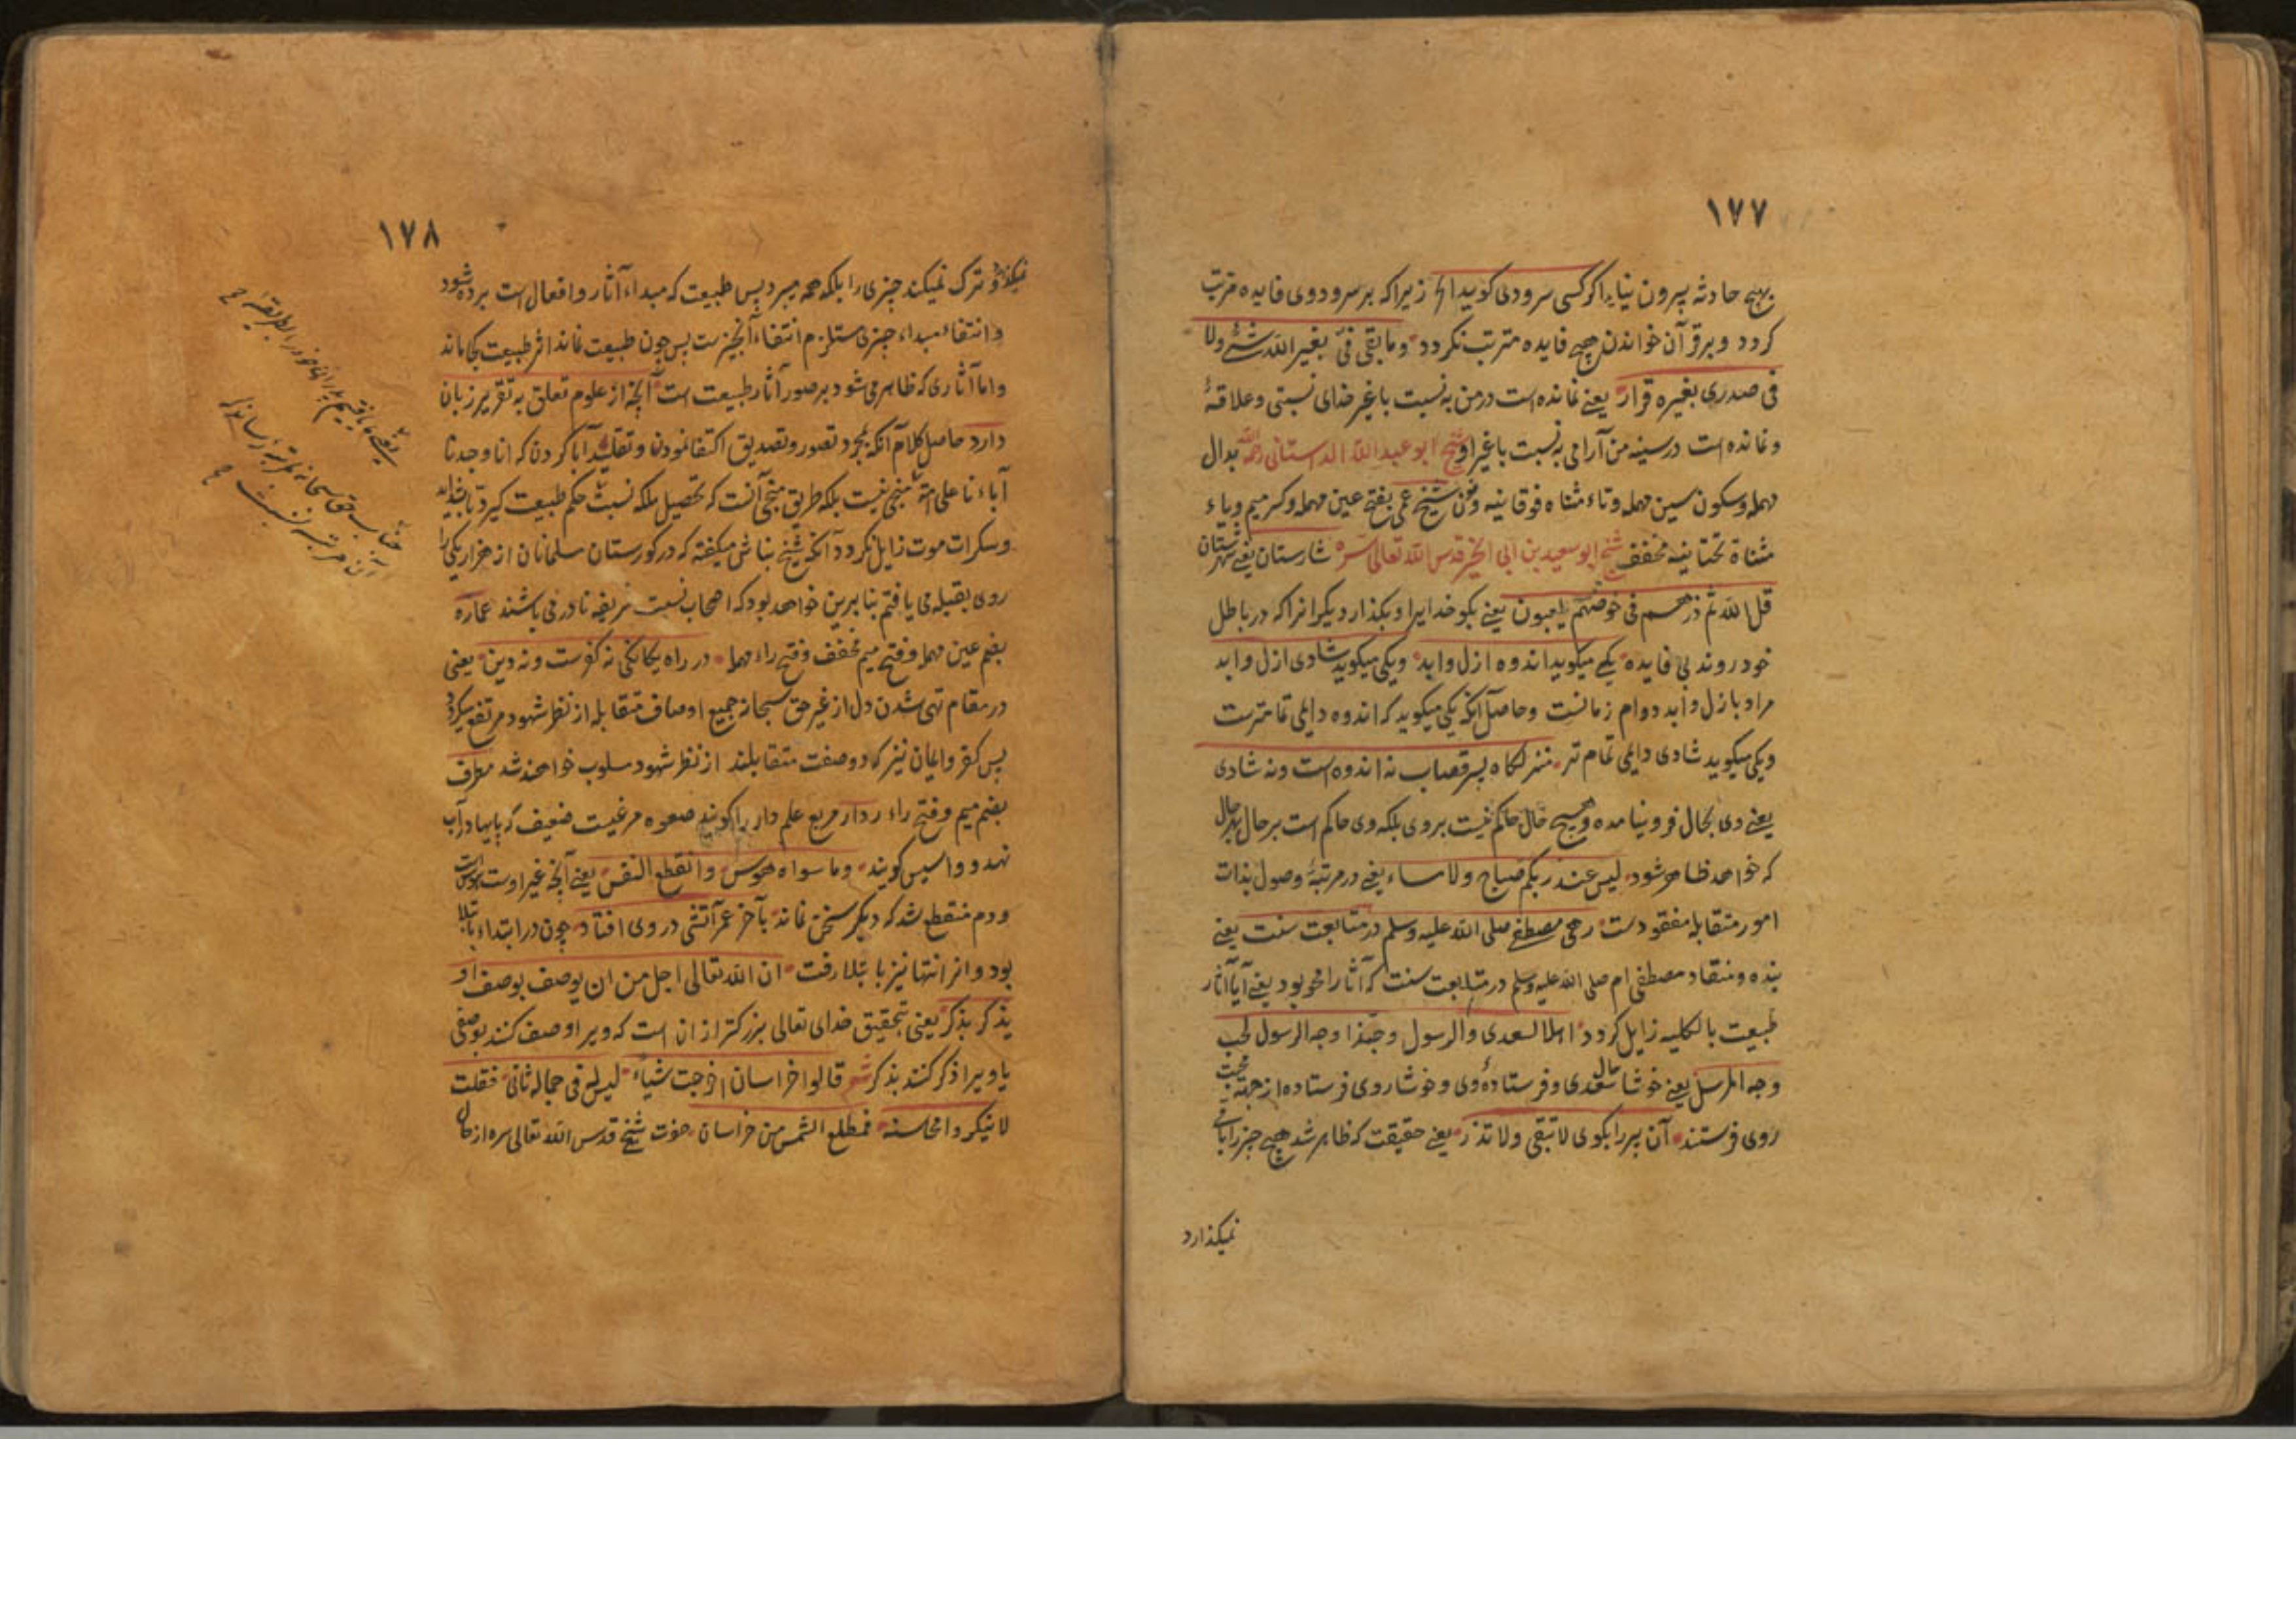 ۱۷۷
بهیچ حادثه بیرون نیاید اکر کسی سرودی کوید الخ زیرا که بر سرود وی فایده مترتب
کردد و بر قرآن خواندن هیچ فایده مترتب نکردد وما بقی فیّ بغیر الله شئ ولا
فی صدری بغیره قرار یعنے نمانده است در من به نسبت با غیر خدای نسبتی وعلاقهٔ
ونمانده است در سینه من آرامی به نسبت با غیر او شیخ ابو عبد الله الداستانی رحمه الله بدال
مهمله وسکون سین مهمله وتاء مثناه فوقانیه ونون شیخ عمی بفتح عین مهمله وکسر میم ویاء
مثناة تحتانیه مخفف شیخ ابو سعید بن ابی الخیر قدس الله تعالی سره شارستان یعنے شهرستان
قل الله ثم ذرهم فی خوضهم یلعبون یعنے بکو خدایرا وبکذار دیکرانرا که در باطل
خود روند بی فایده یکے میکوید اندوه ازل وابد ویکی میکوید شادی ازل وابد
مراد بازل وابد دوام زمانست وحاصل آنکه یکی میکوید که اندوه دایمی تمامترست
ویکی میکوید شادی دایمی تمام تر منزلکاه پسر قصاب نه اندوه است ونه شادی
یعنے وی بحال فرو نیامده وهیچ حال حاکم نیست بر وی بلکه وی حاکم است بر حال بهر حال
که خواهد ظاهر شود لیس عند ربکم صباح ولا مساء یعنے در مرتبهٔ وصول بذات
امور متقابله مفقودست رهی مصطفے صلی الله علیه وسلم در متابعت سنت یعنے
بنده ومنقاد مصطفی ام صلی الله علیه وسلم در متابعت سنت که آثار را محو بود یعنے آیا آثار
طبیعت بالکلیه زایل کردد اهلا لسعدی والرسول وحبّذا وجه الرسول لحب
وجه المرسل یعنے خوشا حال سعدی وفرستادهٔ وی وخوشا روی فرستاده از جهة محبت
روی فرستند آن سر را بکوی لا تبقی ولا تذر یعنے حقیقت که ظاهر شد هیچ چیز را باقی
نمیکذارد
۱۷۸
نمیکذارد وترک نمیکند چیزی را بلکه همه میبرد پس طبیعت که مبداء آثار وافعال است برده شود
وانتفاء مبداء چیزی مستلزم انتفاء آنچیزست پس چون طبیعت نماند اثر طبیعت کجا ماند
واما آثاری که ظاهر می شود بر صور آثار طبیعت است آنچه از علوم تعلق به تقریر زبان
دارد حاصل کلام آنکه بمجرد تصور وتصدیق اکتفا نمودن وتقلید آبا کردن که انا وجدنا
آباءنا علی امة منجی نیست بلکه طریق منجی آنست که تحصیل ملکه نسبت حکم طبیعت کیرد تا بشداید
وسکرات موت زایل نکردد آنکه شیخ نباش میکفته که در کورستان مسلمانان از هزار یکی را
روی بقبله می یافتم بنا برین خواهد بود که اصحاب نسبت شریفه نادر می باشند عماره
بضم عین مهمله وفتح میم مخفف وفتح راء مهمله در راه یکانکی نه کفرست ونه دین یعنی
در مقام تهی شدن دل از غیر حق سبحانه جمیع اوصاف متقابله از نظر شهود مرتفع میکردد
پس کفر وایمان نیز که دو وصفت متقابلند از نظر شهود مسلوب خواهند شد مطرف
بضم میم وفتح راء ردار مربع علم دار را کویند صعوه مرغیست ضعیف که پایها در آب
نهد وواسیس کویند وما سواه هوس وانقطع النفس یعنے آنچه غیر اوست هوس است
ودم منقطع شد که دیکر سخن نماند بآخر عمر آتشی در وی افتاد چون در ابتداء بابتلا
بود وانر انتها نیز بابتلا رفت ان الله تعالی اجل من ان یوصف بوصف او
یذکر بذکر یعنی بتحقیق خدای تعالی بزرکتر از ان است که ویرا وصف کنند بوصفی
یا ویرا ذکر کنند بذکر شعر قالوا خراسان اخرجت شیاء لیس له فی جماله ثانی فقلت
لا تنکروا محاسنه فمطلع الشمس من خراسان حضرت شیخ قدس الله تعالی سره از